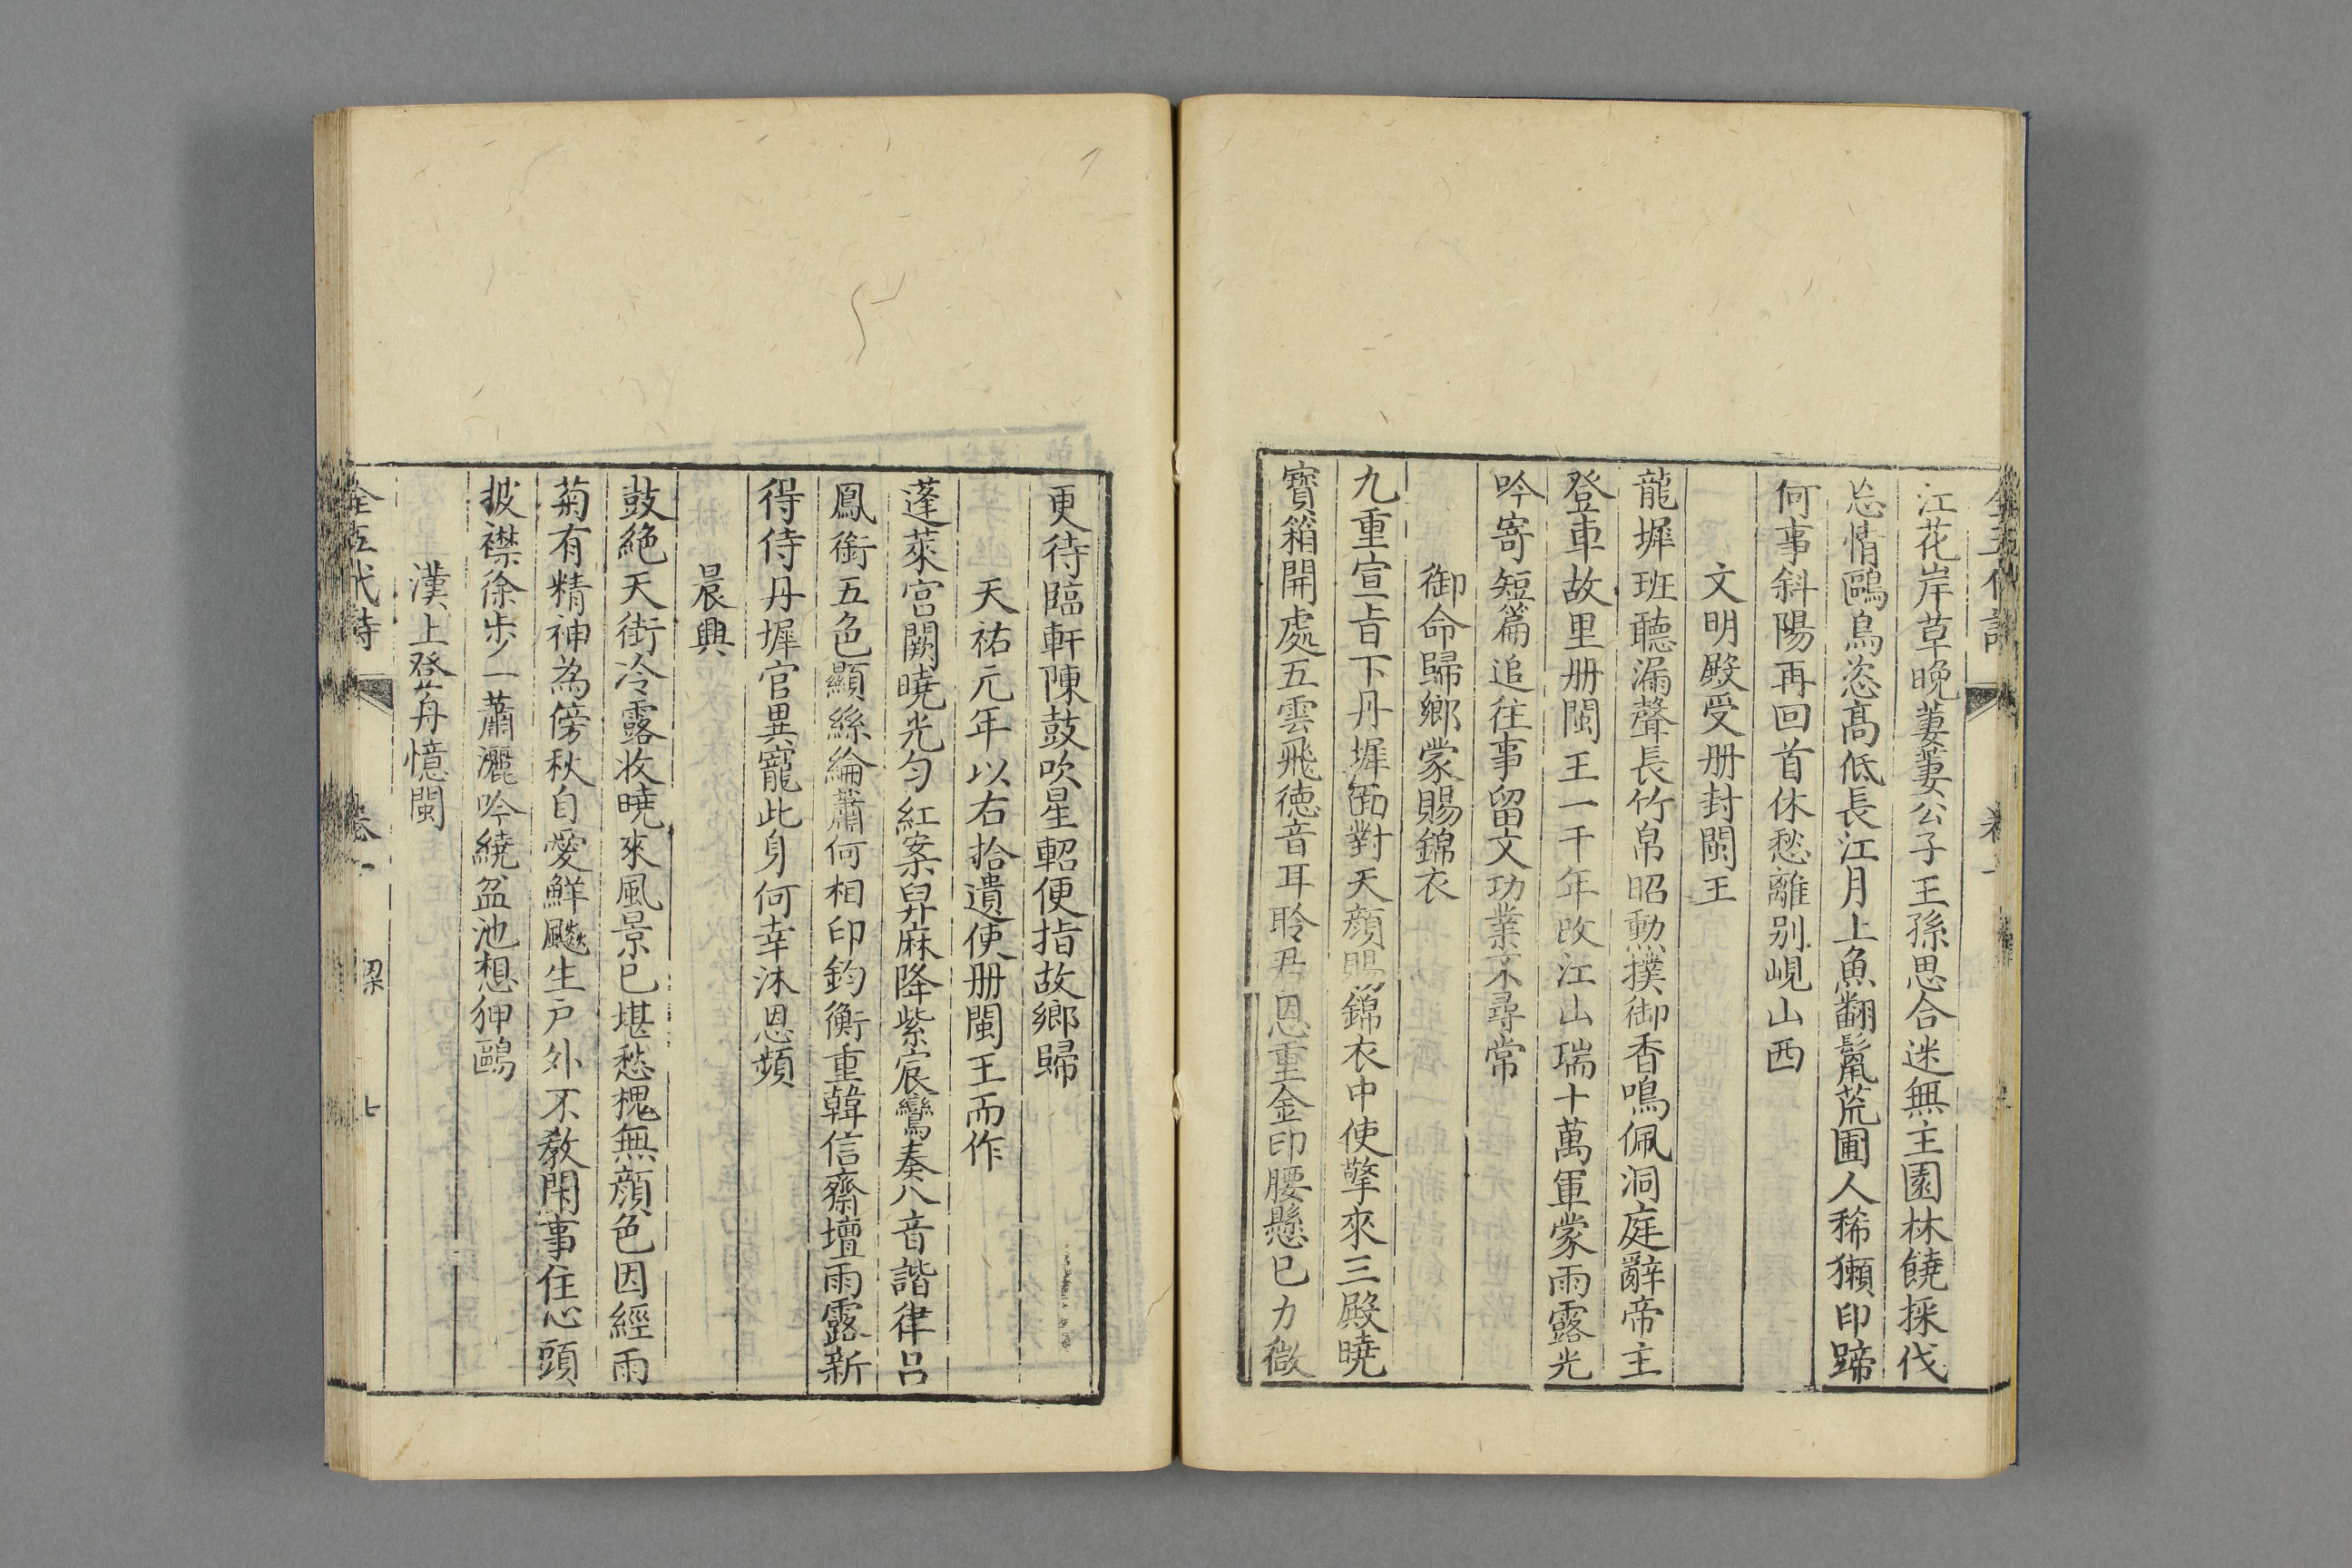 江花岸草晚萋萋公子王孫思合迷無主園林饒採伐
忘情鷗鳥恣髙低長江月上魚翻鬣荒圃人稀獺印蹄
何事斜陽再回首休愁離别峴山西
文明殿受册封閩王
龍墀班聽漏聲長竹帛昭勳撲御香鳴佩洞庭辭帝主
登車故里册閩王一千年改江山瑞十萬軍蒙雨露光
吟寄短篇追往事留文功業不尋常
御命歸鄉蒙賜錦衣
九重宣㫖下丹墀面對天顔賜錦衣中使擎來三殿曉
寶箱開處五雲飛德音耳聆君恩重金印腰懸巳力微
更待臨軒陳鼓吹星軺便指故鄉歸
天祐元年以右拾遺使册閩王而作
蓬萊宫闕曉光匀紅案舁麻降紫宸鸞奏八音諧律吕
鳳銜五色顯絲綸蕭何相印鈞衡重韓信齋壇雨露新
得侍丹墀官異寵此身何幸沐恩頻
晨興
鼓絶天街冷露收曉來風景已堪愁槐無顔色因經雨
菊有精神為傍秋自愛鮮飈生户外不教閑事住心頭
披襟徐步一蕭灑吟繞盆池想狎鷗
漢上登舟憶閩
全五代詩 卷一 梁 七